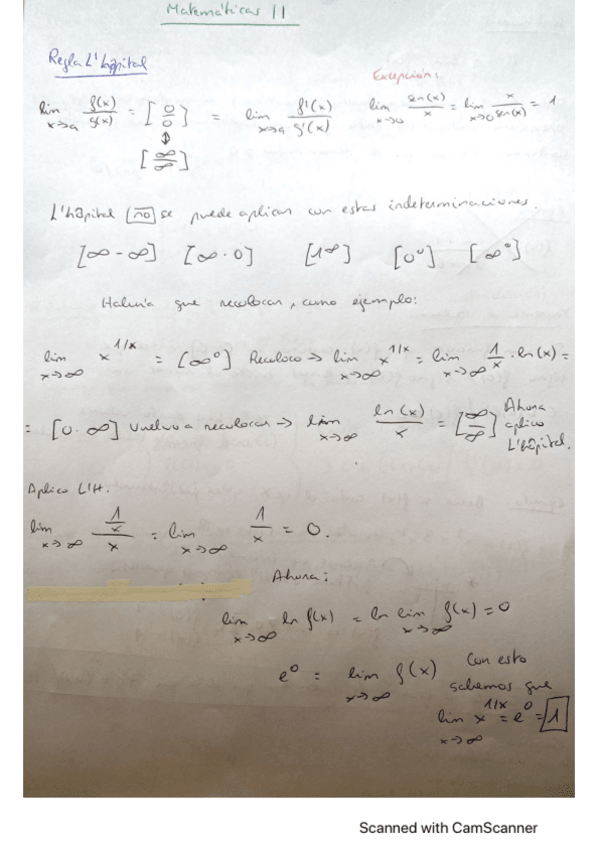 Matemáticas II
Regla L'hôpital
Excepción:
lim x→a f(x)/g(x) = [0/0] = lim x→a f'(x)/g'(x) lim x→0 sen(x)/x = lim x→0 x/sen(x) = 1
↕
[∞/∞]
L'hôpital no se puede aplicar con estas indeterminaciones.
[∞-∞] [∞·0] [1^∞] [0^0] [∞^0]
Habría que recolocar, como ejemplo:
lim x→∞ x^1/x = [∞^0] Recoloco → lim x→∞ x^1/x = lim x→∞ 1/x · ln(x) =
= [0·∞] Vuelvo a recolocar → lim x→∞ ln(x)/x = [∞/∞] Ahora aplico L'hôpital.
Aplico L'H.
lim x→∞ (1/x)/x = lim x→∞ 1/x = 0.
Ahora:
lim x→∞ ln f(x) = ln lim x→∞ f(x) = 0
e^0 = lim x→∞ f(x) Con esto
sabemos que
lim x→∞ x^1/x = e^0 = 1
Scanned with CamScanner